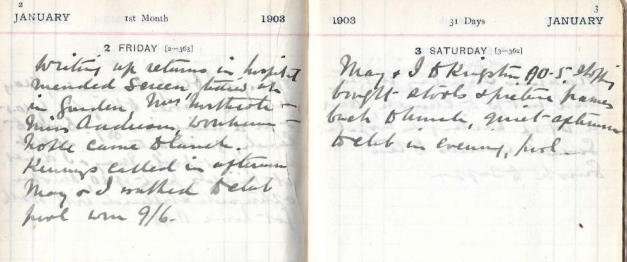 2
JANUARY 1st Month 1903
2 FRIDAY [2-363]
Writing up returns in hospital
mended screen
in Garden, Mrs Northcote &
Miss Anderson,
came to lunch.
called in afternoon
May & I walked to club
pool won 9/6.
3
1903 31 Days JANUARY
3 SATURDAY [3-362]
May & I to Kingston 90.5
bought stools & picture frames
back to lunch, quiet afternoon
to club in evening, pool